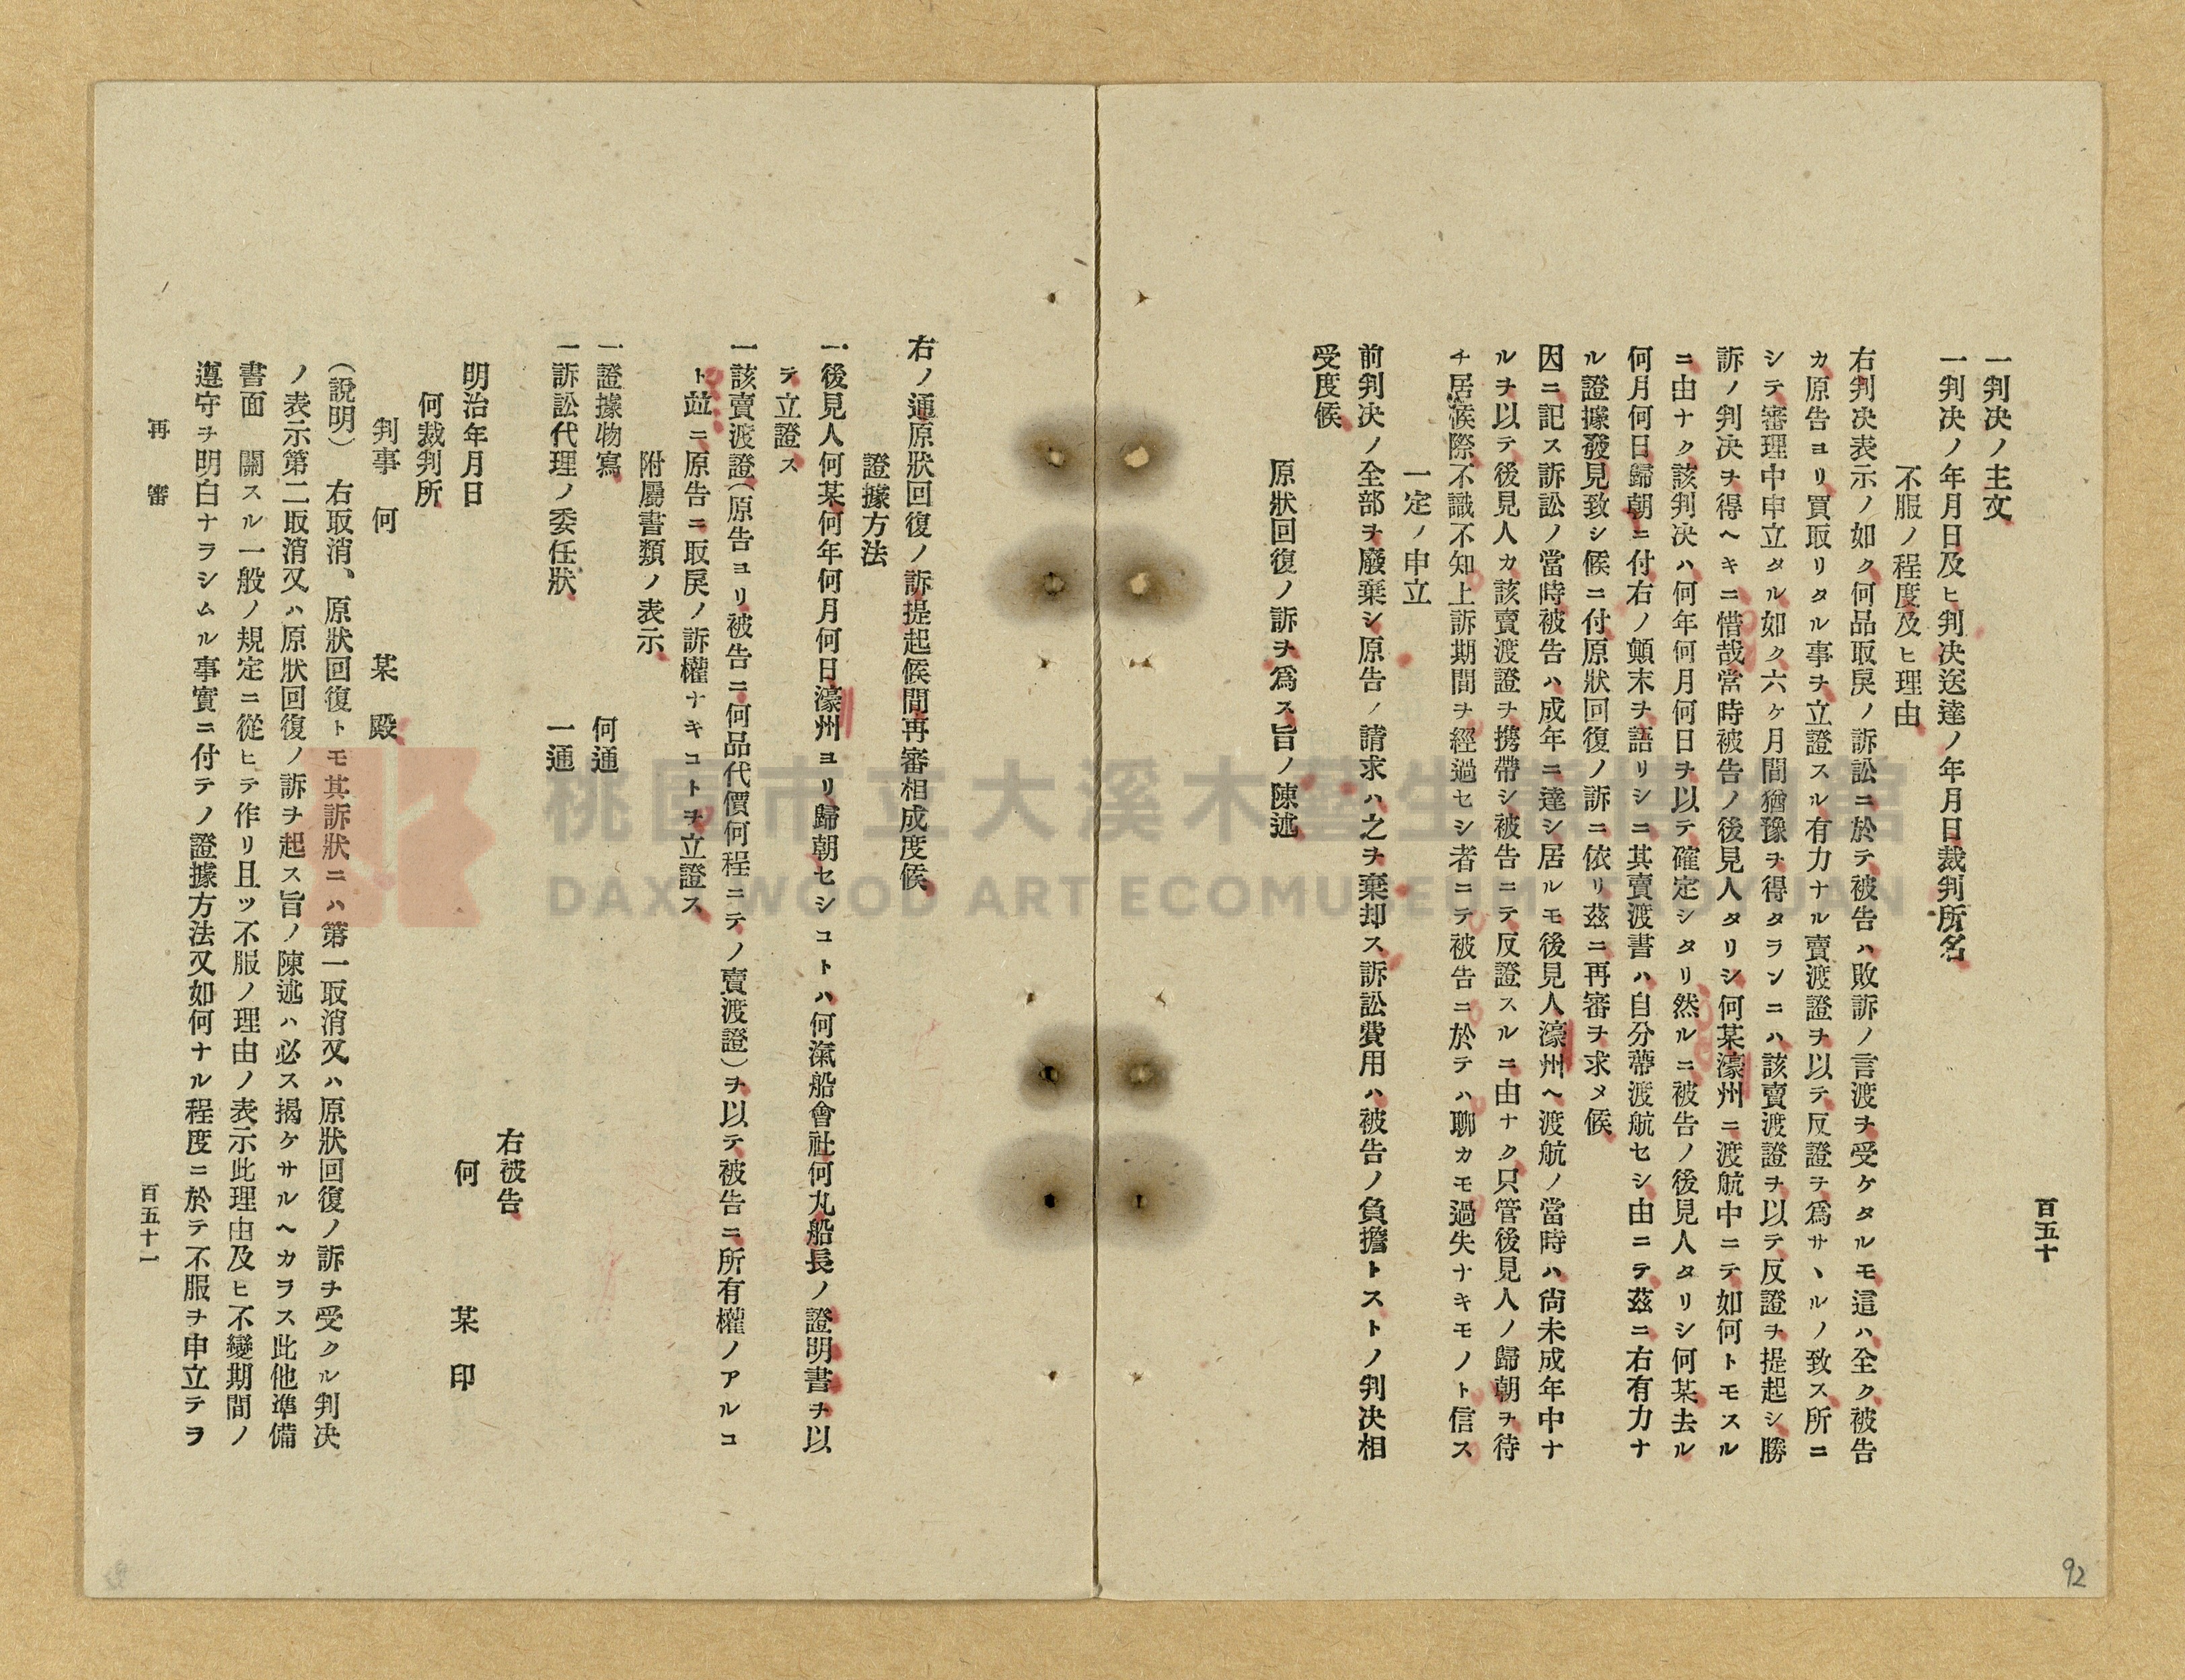 百五十
一判决ノ主文
一判决ノ年月日及ヒ判决送達ノ年月日裁判所名
不服ノ程度及ヒ理由
右判决表示ノ如ク何品取戾ノ訴訟ニ於テ被告ハ敗訴ノ言渡ヲ受ケタルモ這ハ全ク被告
カ原告ヨリ買取リタル事ヲ立證スル有力ナル賣渡證ヲ以テ反證ヲ爲サヽルノ致ス所ニ
シテ審理中申立タル如ク六ケ月間猶豫ヲ得タランニハ該賣渡證ヲ以テ反證ヲ提起シ勝
訴ノ判决ヲ得ヘキニ惜哉常時被告ノ後見人タリシ何某濠州ニ渡航中ニテ如何トモスル
ニ由ナク該判决ハ何年何月何日ヲ以テ確定シタリ然ルニ被告ノ後見人タリシ何某去ル
何月何日歸朝ニ付右ノ顛末ヲ語リシニ其賣渡書ハ自分帶渡航セシ由ニテ茲ニ右有力ナ
ル證據發見致シ候ニ付原狀回復ノ訴ニ依リ茲ニ再審ヲ求メ候
因ニ記ス訴訟ノ當時被告ハ成年ニ達シ居ルモ後見人濠州ヘ渡航ノ當時ハ尙未成年中ナ
ルヲ以テ後見人カ該賣渡證ヲ携帶シ被告ニテ反證スルニ由ナク只管後見人ノ歸朝ヲ待
チ居候際不識不知上訴期間ヲ經過セシ者ニテ被告ニ於テハ聊カモ過失ナキモノト信ス
一定ノ申立
前判决ノ全部ヲ廢棄シ原告ノ請求ハ之ヲ棄却ス訴訟費用ハ被告ノ負擔トストノ判决相
受度候
原狀回復ノ訴ヲ爲ス旨ノ陳述
右ノ通原狀回復ノ訴提起候間再審相成度候
證據方法
一後見人何某何年何月何日濠州ヨリ歸朝セシコトハ何滊船會社何丸船長ノ證明書ヲ以
テ立證ス
一該賣渡證(原告ヨリ被告ニ何品代價何程ニテノ賣渡證)ヲ以テ被告ニ所有權ノアルコ
ト竝ニ原告ニ取戾ノ訴權ナキコトヲ立證ス
附屬書類ノ表示
一證據物寫 何通
一訴訟代理ノ委任狀 一通
右被告
何 某 印
明治年月日
何裁判所
判事 何 某 殿
(說明) 右取消、原狀回復トモ其訴狀ニハ第一取消又ハ原狀回復ノ訴ヲ受クル判决
ノ表示第二取消又ハ原狀回復ノ訴ヲ起ス旨ノ陳述ハ必ス揭ケサルヘカラス此他準備
書面 關スル一般ノ規定ニ從ヒテ作リ且ツ不服ノ理由ノ表示此理由及ヒ不變期間ノ
遵守ヲ明白ナラシムル事實ニ付テノ證據方法又如何ナル程度ニ於テ不服ヲ申立テヲ
再審
百五十一
92
桃園市立大溪木藝生態博物館
DAXI WOOD ART ECOMUSEUM, TAOYUAN